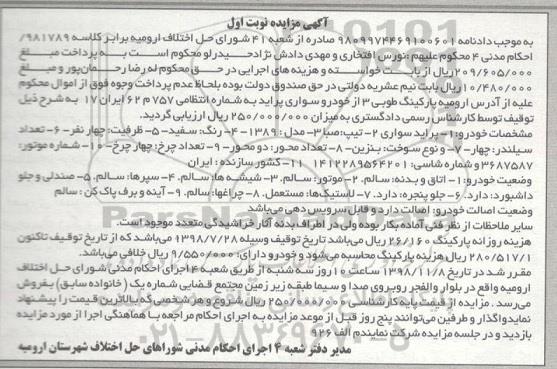 آگهی مزایده نوبت اول
به موجب دادنامه ۹۸۰۹۹۷۴۴۶۹۱۰۰۶۰۱ صادره از شعبه ۴۱ شورای حل اختلاف ارومیه برابر کلاسه ۹۸۱۷۸۹/
احکام مدنی ۴ محکوم علیهم: نورس افتخاری و مهدی دادش نژاد حیدرلو محکوم است به پرداخت مبلغ
۲۰۹/۶۰۵/۰۰۰ ریال از بابت خواسته و هزینه های اجرایی در حق محکوم له رضا رحمان پور و مبلغ
۱۰/۴۸۰/۰۰۰ ریال بابت نیم عشریه دولتی در حق صندوق دولت بوده بلحاظ عدم پرداخت وجوه فوق از اموال محکوم
علیه از آدرس ارومیه پارکینگ طوبی ۳ از خودرو سواری پراید به شماره انتظامی ۷۵۷ م ۶۲ ایران ۱۷ به شرح ذیل
توقیف توسط کارشناس رسمی دادگستری به میزان ۲۵۰/۰۰۰/۰۰۰ ریال ارزیابی گردید.
مشخصات خودرو: ۱- پراید سواری ۲- تیپ: صبا ۳- مدل: ۱۳۸۹ ۴- رنگ: سفید ۵- ظرفیت: چهار نفر ۶- تعداد
سیلندر: چهار ۷- و نوع سوخت: بنزین ۸- تعداد محور: دو محور ۹- تعداد چرخ: چهار چرخ ۱۰- شماره موتور:
۳۶۸۷۵۸۷ و شماره شاسی: ۱۴۱۲۲۸۹۵۶۴۲۰۱ ۱۱- کشور سازنده: ایران
وضعیت خودرو: ۱- اتاق و بدنه: سالم. ۲- موتور: سالم. ۳- شیشه ها: سالم. ۴- سپرها: سالم. ۵- صندلی و جلو
داشبورد: دارد. ۶- جلو پنجره: دارد. ۷- لاستیک ها: مستعمل. ۸- چراغها: سالم. ۹- آینه و برف پاک کن: سالم
وضعیت اصالت خودرو: اصالت دارد و قابل سرویس دهی می باشد
سایر ملاحظات از نظر فنی آماده بکار بوده ولی در اطراف بدنه آثار خراشیدگی متعدد موجود است.
هزینه روزانه پارکینگ ۲۶/۱۶۰ ریال می باشد تاریخ توقیف وسیله ۱۳۹۸/۷/۲۸ می باشد که از تاریخ توقیف تاکنون
۲۸۰/۵۱۷/۱ ریال هزینه پارکینگ محاسبه می شود و خودرو دارای: ۹/۵۵۰/۰۰۰ ریال خلافی می باشد.
مقرر شد در تاریخ ۱۳۹۸/۱۱/۸ ساعت ۱۰ روز سه شنبه از طریق شعبه ۴ اجرای احکام مدنی شورای حل اختلاف
ارومیه واقع در بلوار والفجر روبروی صدا و سیما طبقه زیر زمین مجتمع قضایی شماره یک (خانواده سابق) بفروش
می رسد. مزایده از قیمت پایه کارشناسی ۲۵۰/۰۰۰/۰۰۰ ریال شروع و هر شخصی که بالاترین قیمت را پیشنهاد
نماید واگذار و طرفین می توانند پنج روز قبل از موعد مزایده به اجرای احکام مراجعه با هماهنگی اجرا از مورد مزایده
بازدید و در جلسه مزایده شرکت نمایند م الف ۹۲۶
مدیر دفتر شعبه ۴ اجرای احکام مدنی شوراهای حل اختلاف شهرستان ارومیه